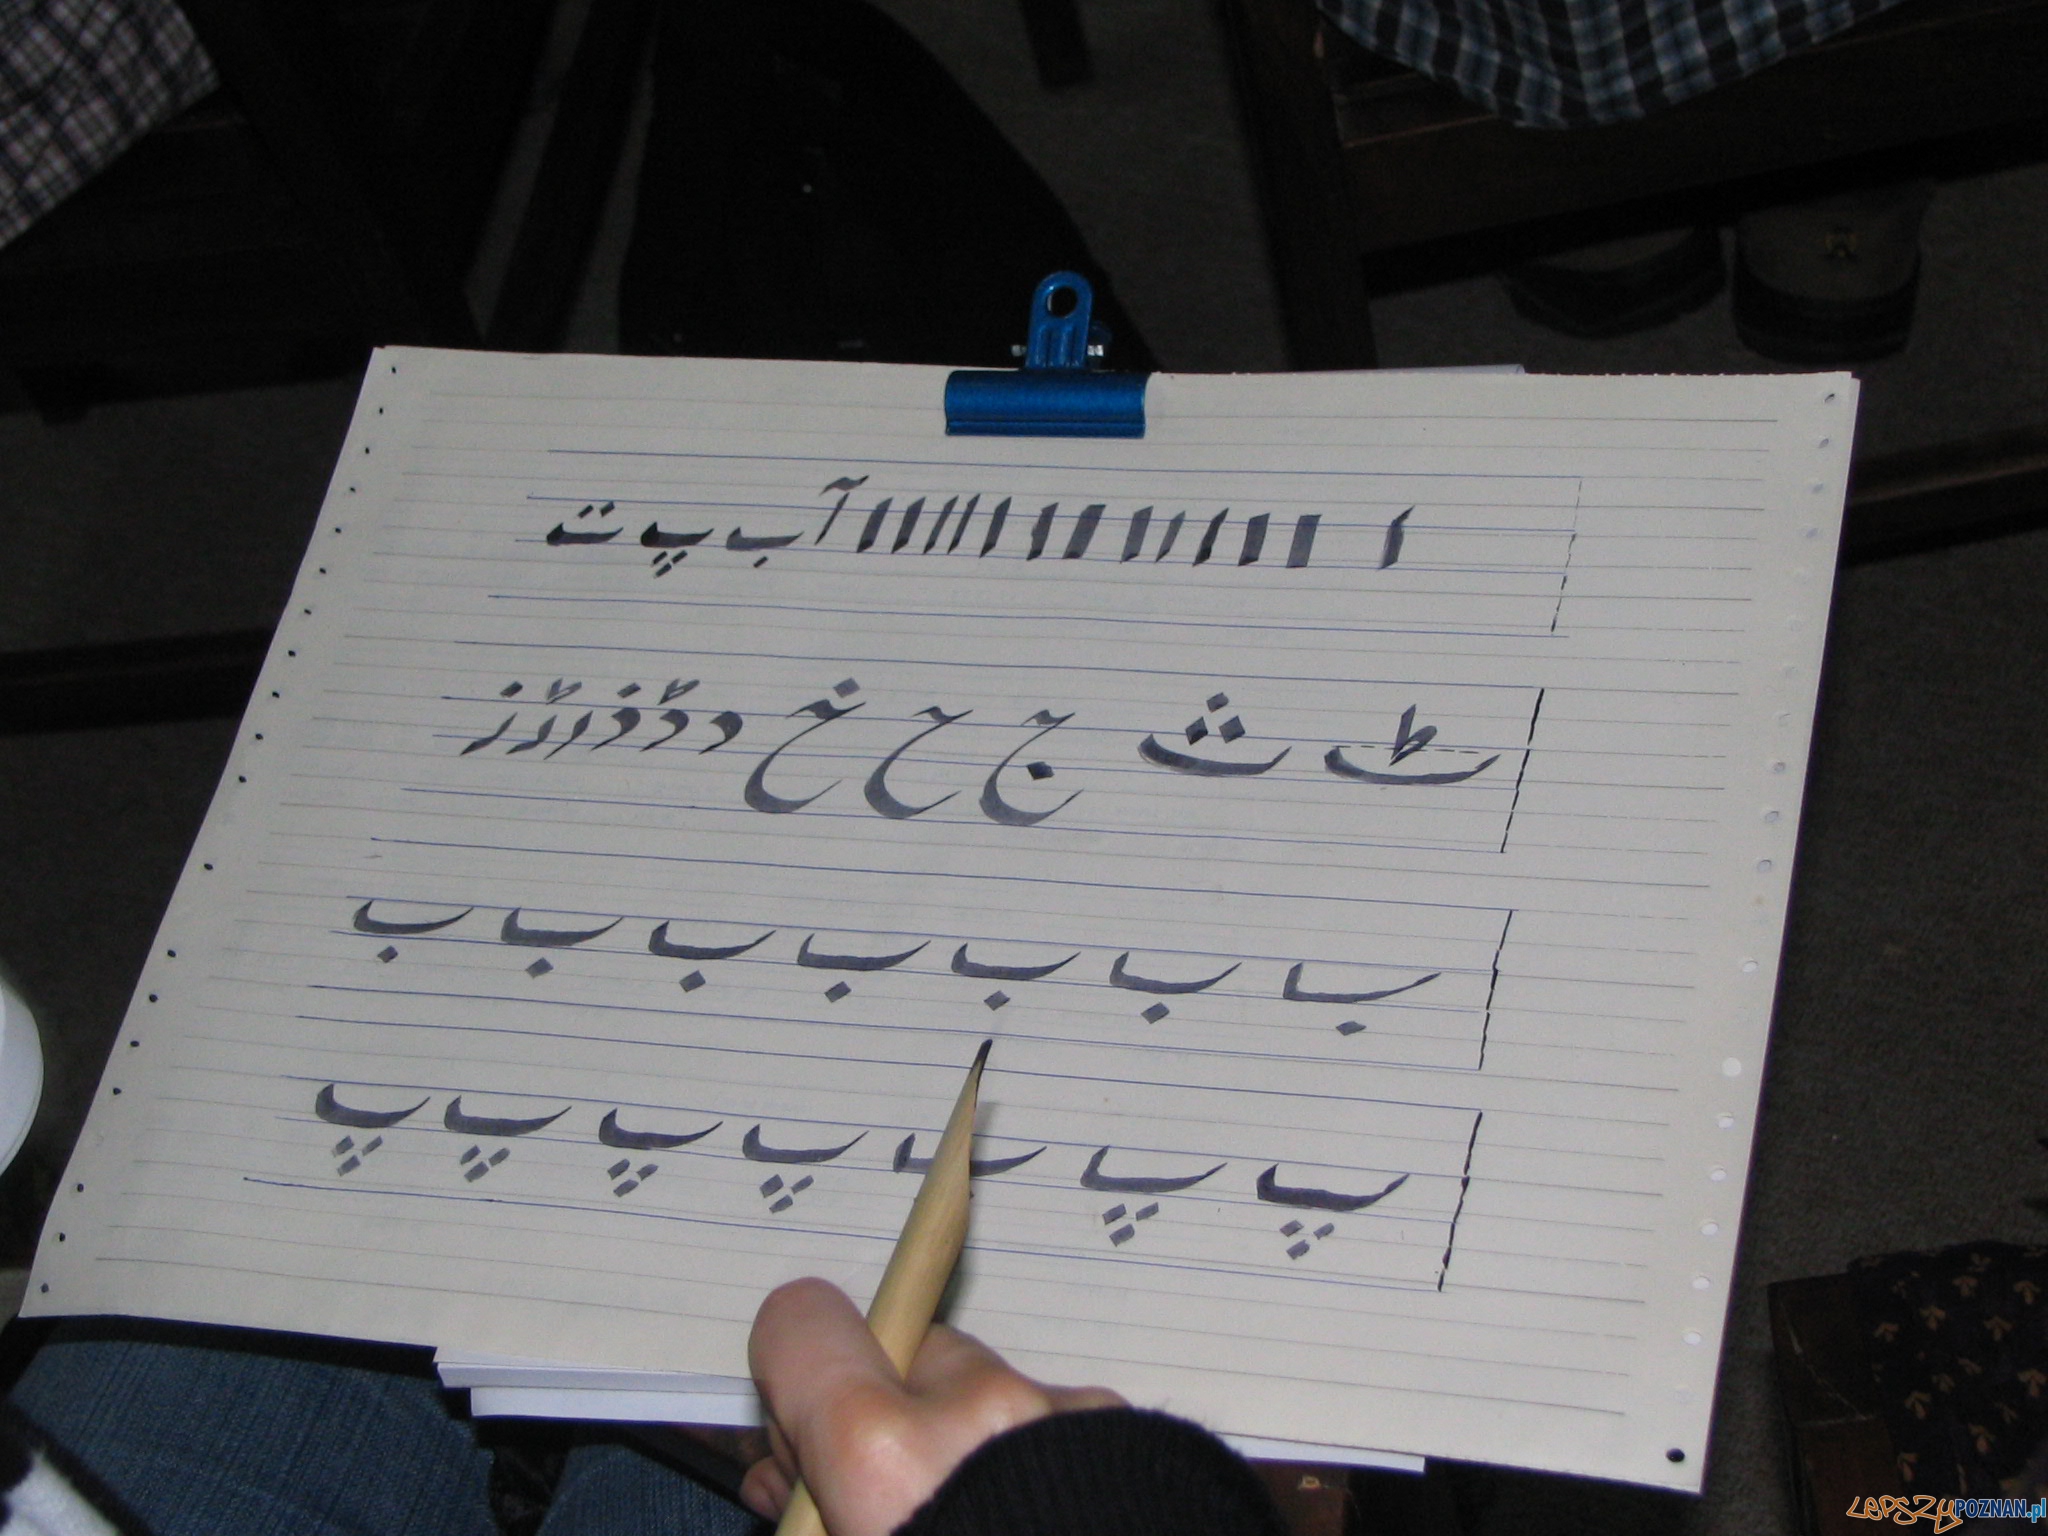 ا ا ا ا ا ا ا ا ا ا ا ا ا ا آ ب پ ت
ٹ ث ج ح خ د ڈ ذ ر ڑ ز
ب ب ب ب ب ب ب
پ پ پ پ پ پ پ
LEPSZY POZNAN.pl